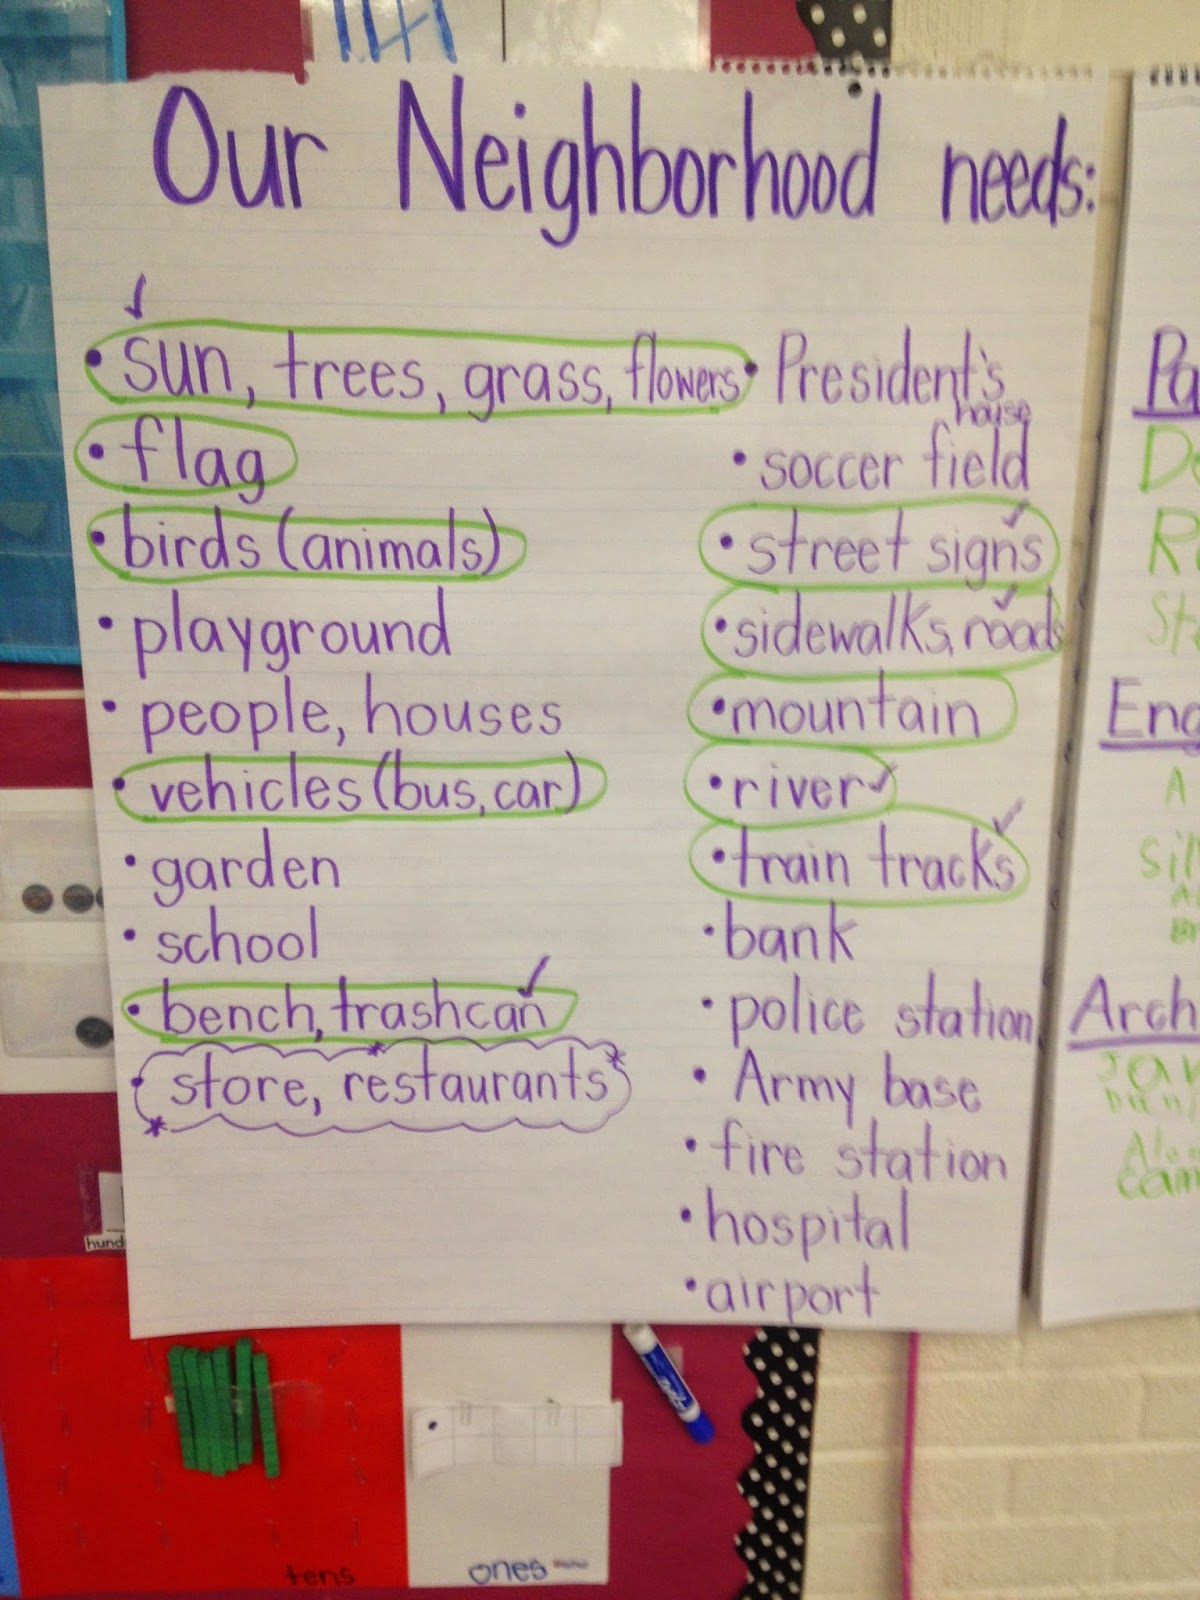 Our Neighborhood needs:
• sun, trees, grass, flowers
• flag
• birds (animals)
• playground
• people, houses
• vehicles (bus, car)
• garden
• school
• bench, trashcan
• store, restaurants
• President's
house
• soccer field
• street signs
• sidewalks, roads
• mountain
• river
• train tracks
• bank
• police station
• Army base
• fire station
• hospital
• airport
Arch
A
tens
ones